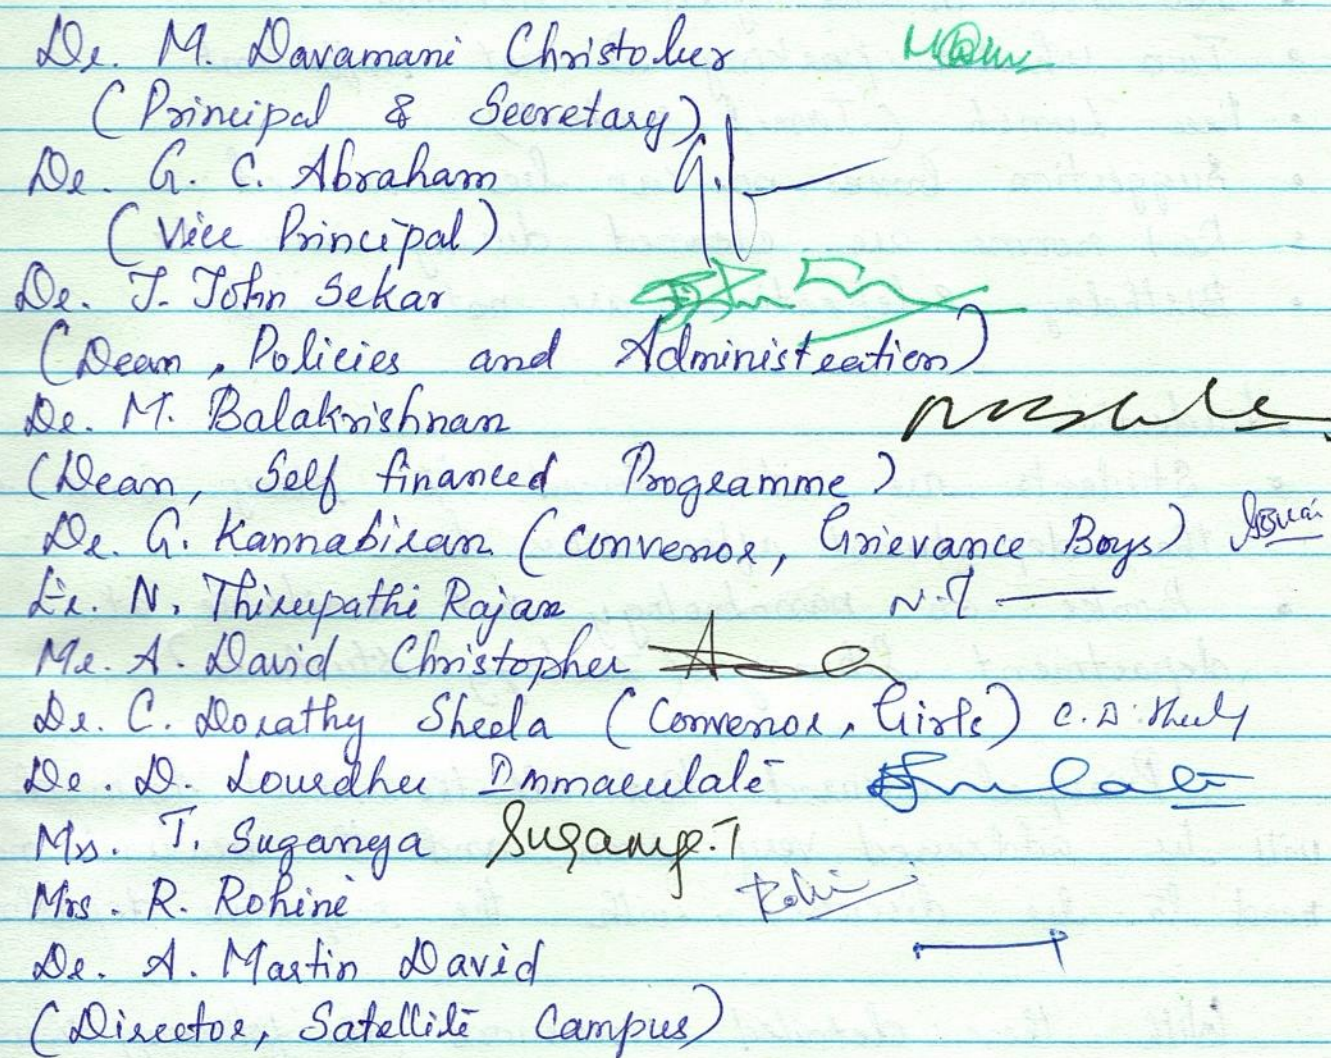 Dr. M. Davamani Christober
(Principal & Secretary)
Dr. G. C. Abraham
(Vice Principal)
Dr. J. John Sekar
(Dean, Policies and Administration)
Dr. M. Balakrishnan
(Dean, Self financed Programme)
Dr. G. Kannabiran (Convenor, Grievance Boys)
Er. N. Thirupathi Rajan N.T
Mr. A. David Christopher
Dr. C. Dorathy Sheela (Convenor, Girls) C.D. Sheely
Dr. D. Lourdhu Immaculate
Mrs. T. Suganya Suganya.T
Mrs. R. Rohini Rohini
Dr. A. Martin David
(Director, Satellite Campus)